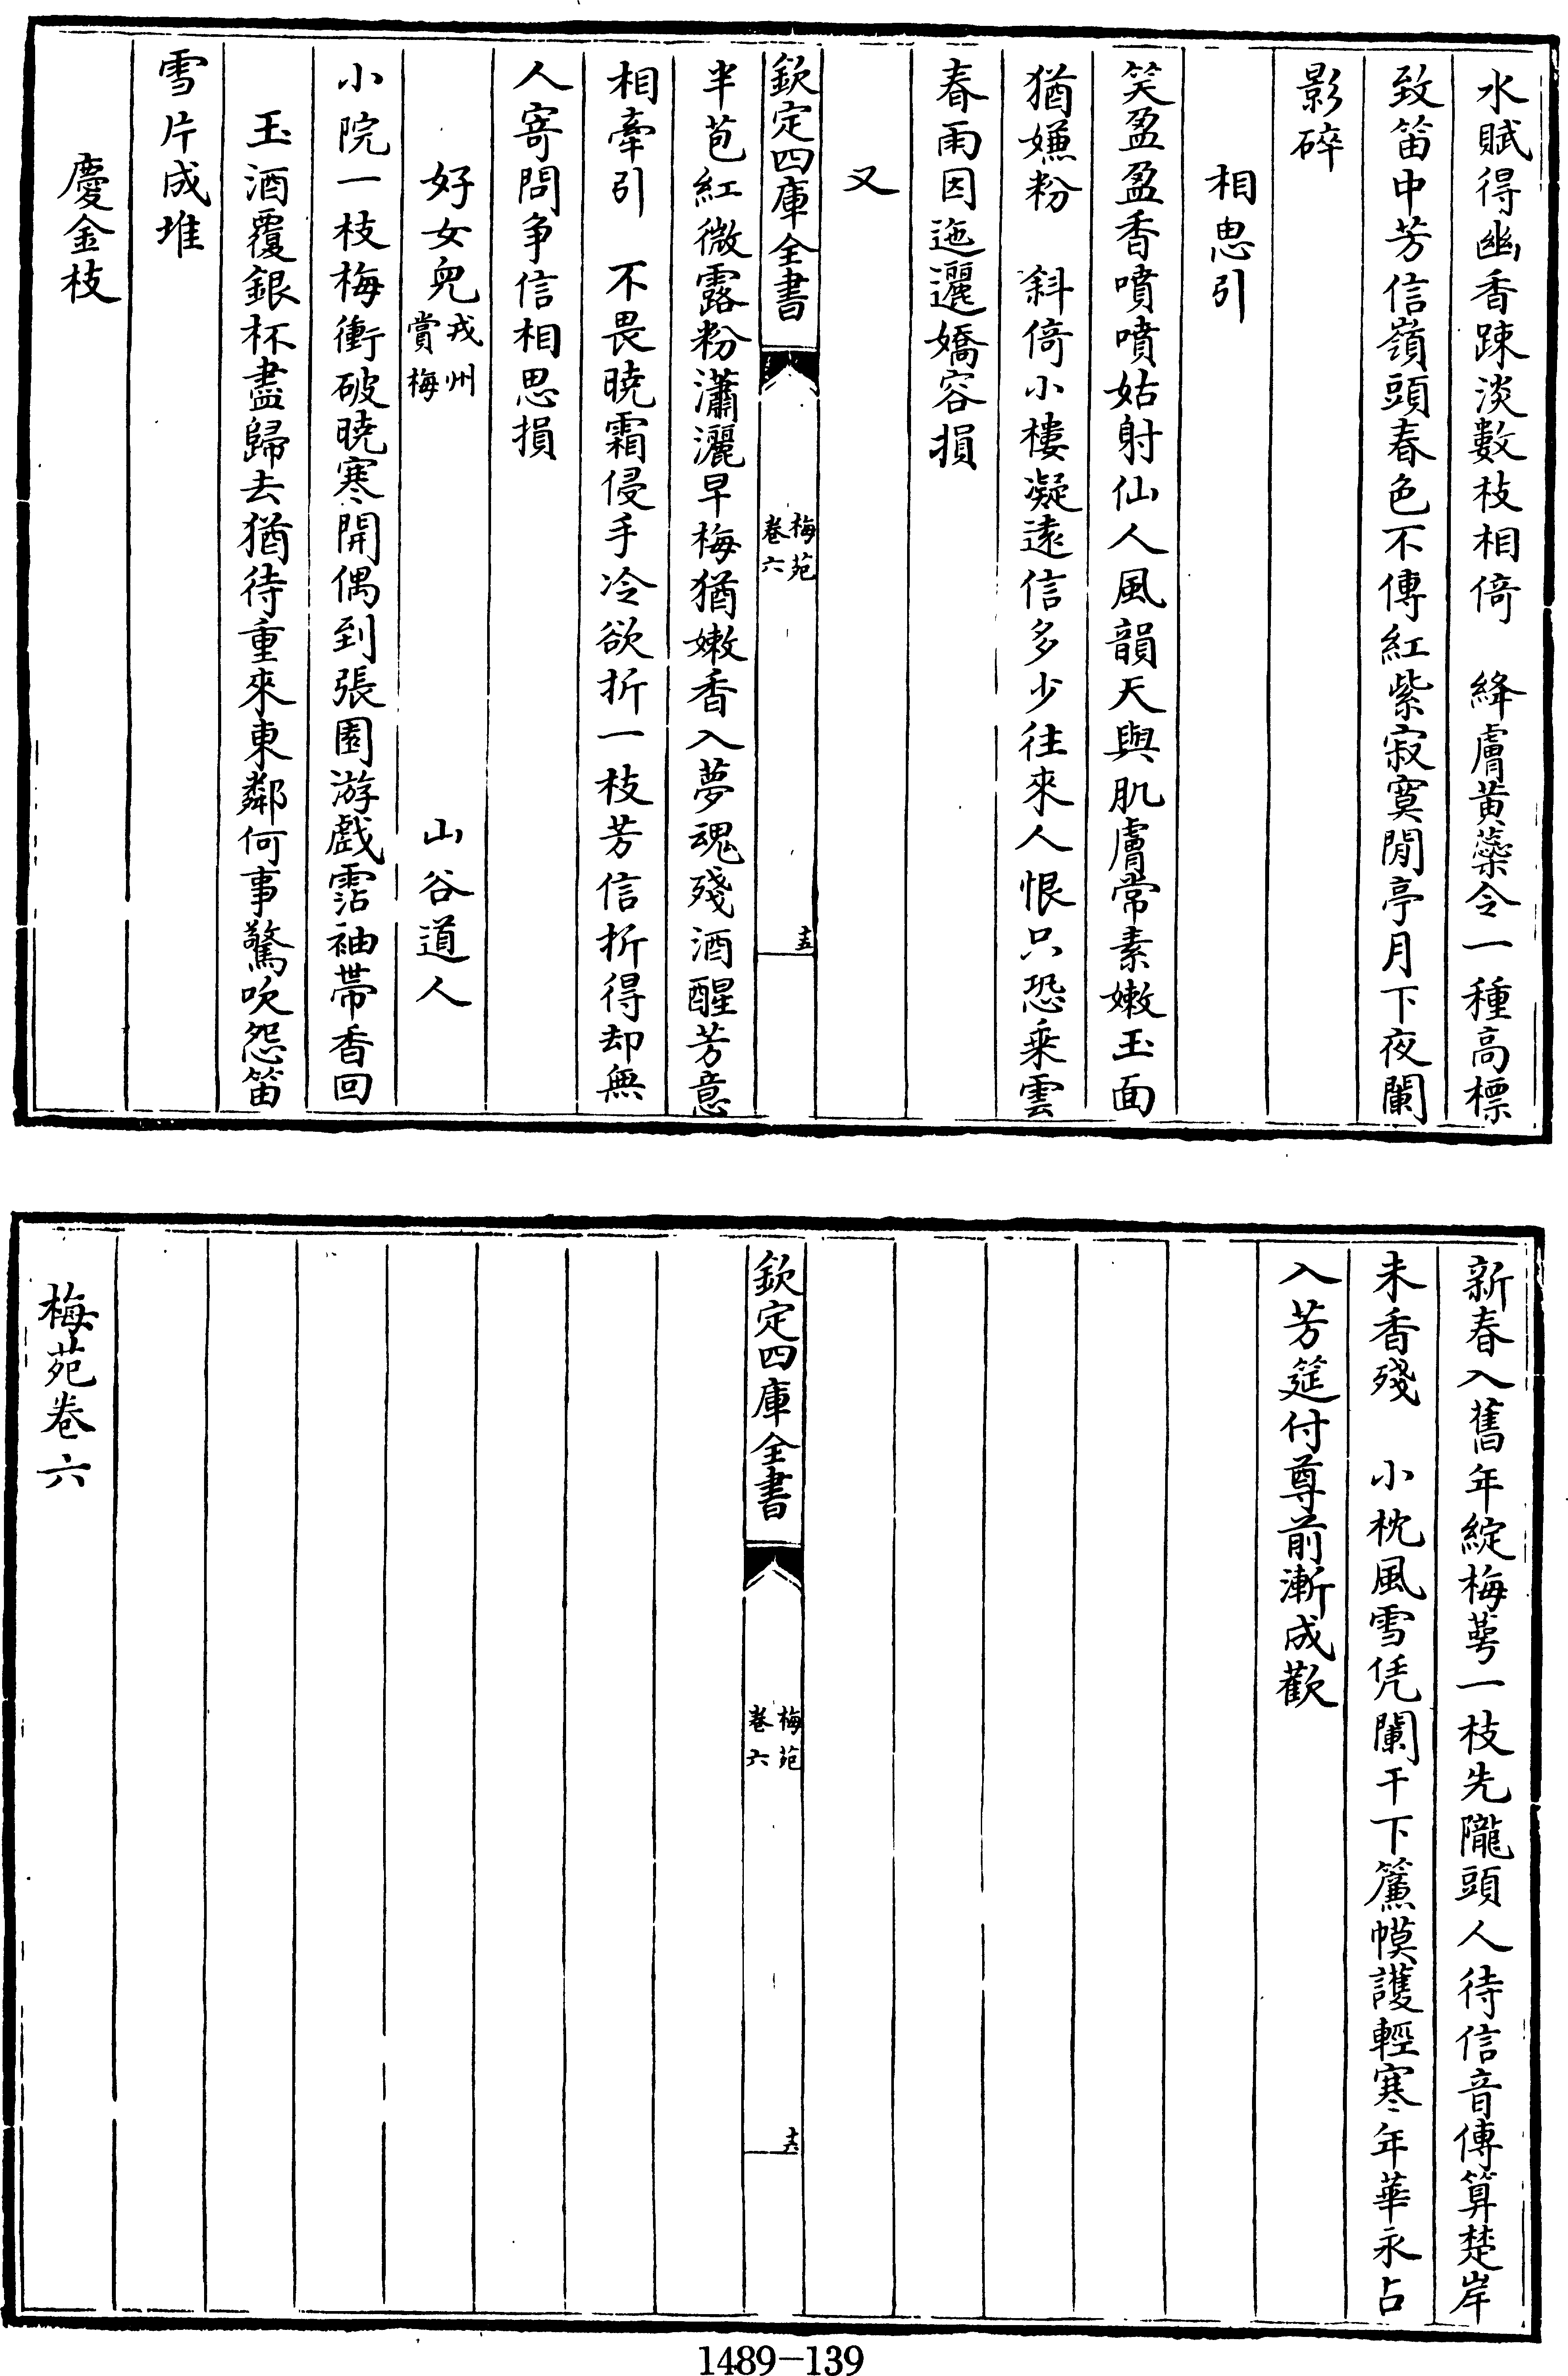 水賦得幽香踈淡數枝相倚　絳膚黄蘂令一種高標
致笛中芳信嶺頭春色不傳紅紫寂寞閒亭月下夜闌
影碎
相思引
笑盈盈香噴噴姑射仙人風韻天與肌膚常素嫩玉面
猶嫌粉　斜倚小樓凝遠信多少往來人恨只恐乗雲
春雨因迤邐嬌容損
又
欽定四庫全書
梅苑
卷六
十五
半苞紅微露粉瀟灑早梅猶嫩香入夢魂殘酒醒芳意
相牽引　不畏曉霜侵手冷欲折一枝芳信折得却無
人寄問争信相思損
好女兒戎州賞梅　山谷道人
小院一枝梅衝破曉寒開偶到張園游戲霑袖帶香回
玉酒覆銀杯盡歸去猶待重來東鄰何事驚吹怨笛
雪片成堆
慶金枝
新春入舊年綻梅萼一枝先隴頭人待信音傳算楚岸
未香殘　小枕風雪凭闌干下簾幙護輕寒年華永占
入芳筵付尊前漸成歡
欽定四庫全書
梅苑
卷六
十六
梅苑卷六
1489-139